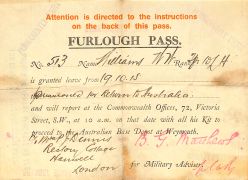 Attention is directed to the instructions
on the back of this pass.
FURLOUGH PASS.
No. 513 Name Williams Rank
is granted leave from 19.10.15
for Return to Australia
and will report at the Commonwealth Offices, 72, Victoria
Street, S.W., at 10 a.m. on that date with all Kit to
proceed to the Australian Base Depot at Weymouth.
Rectory College
Hanwell
London
for Military Advisor